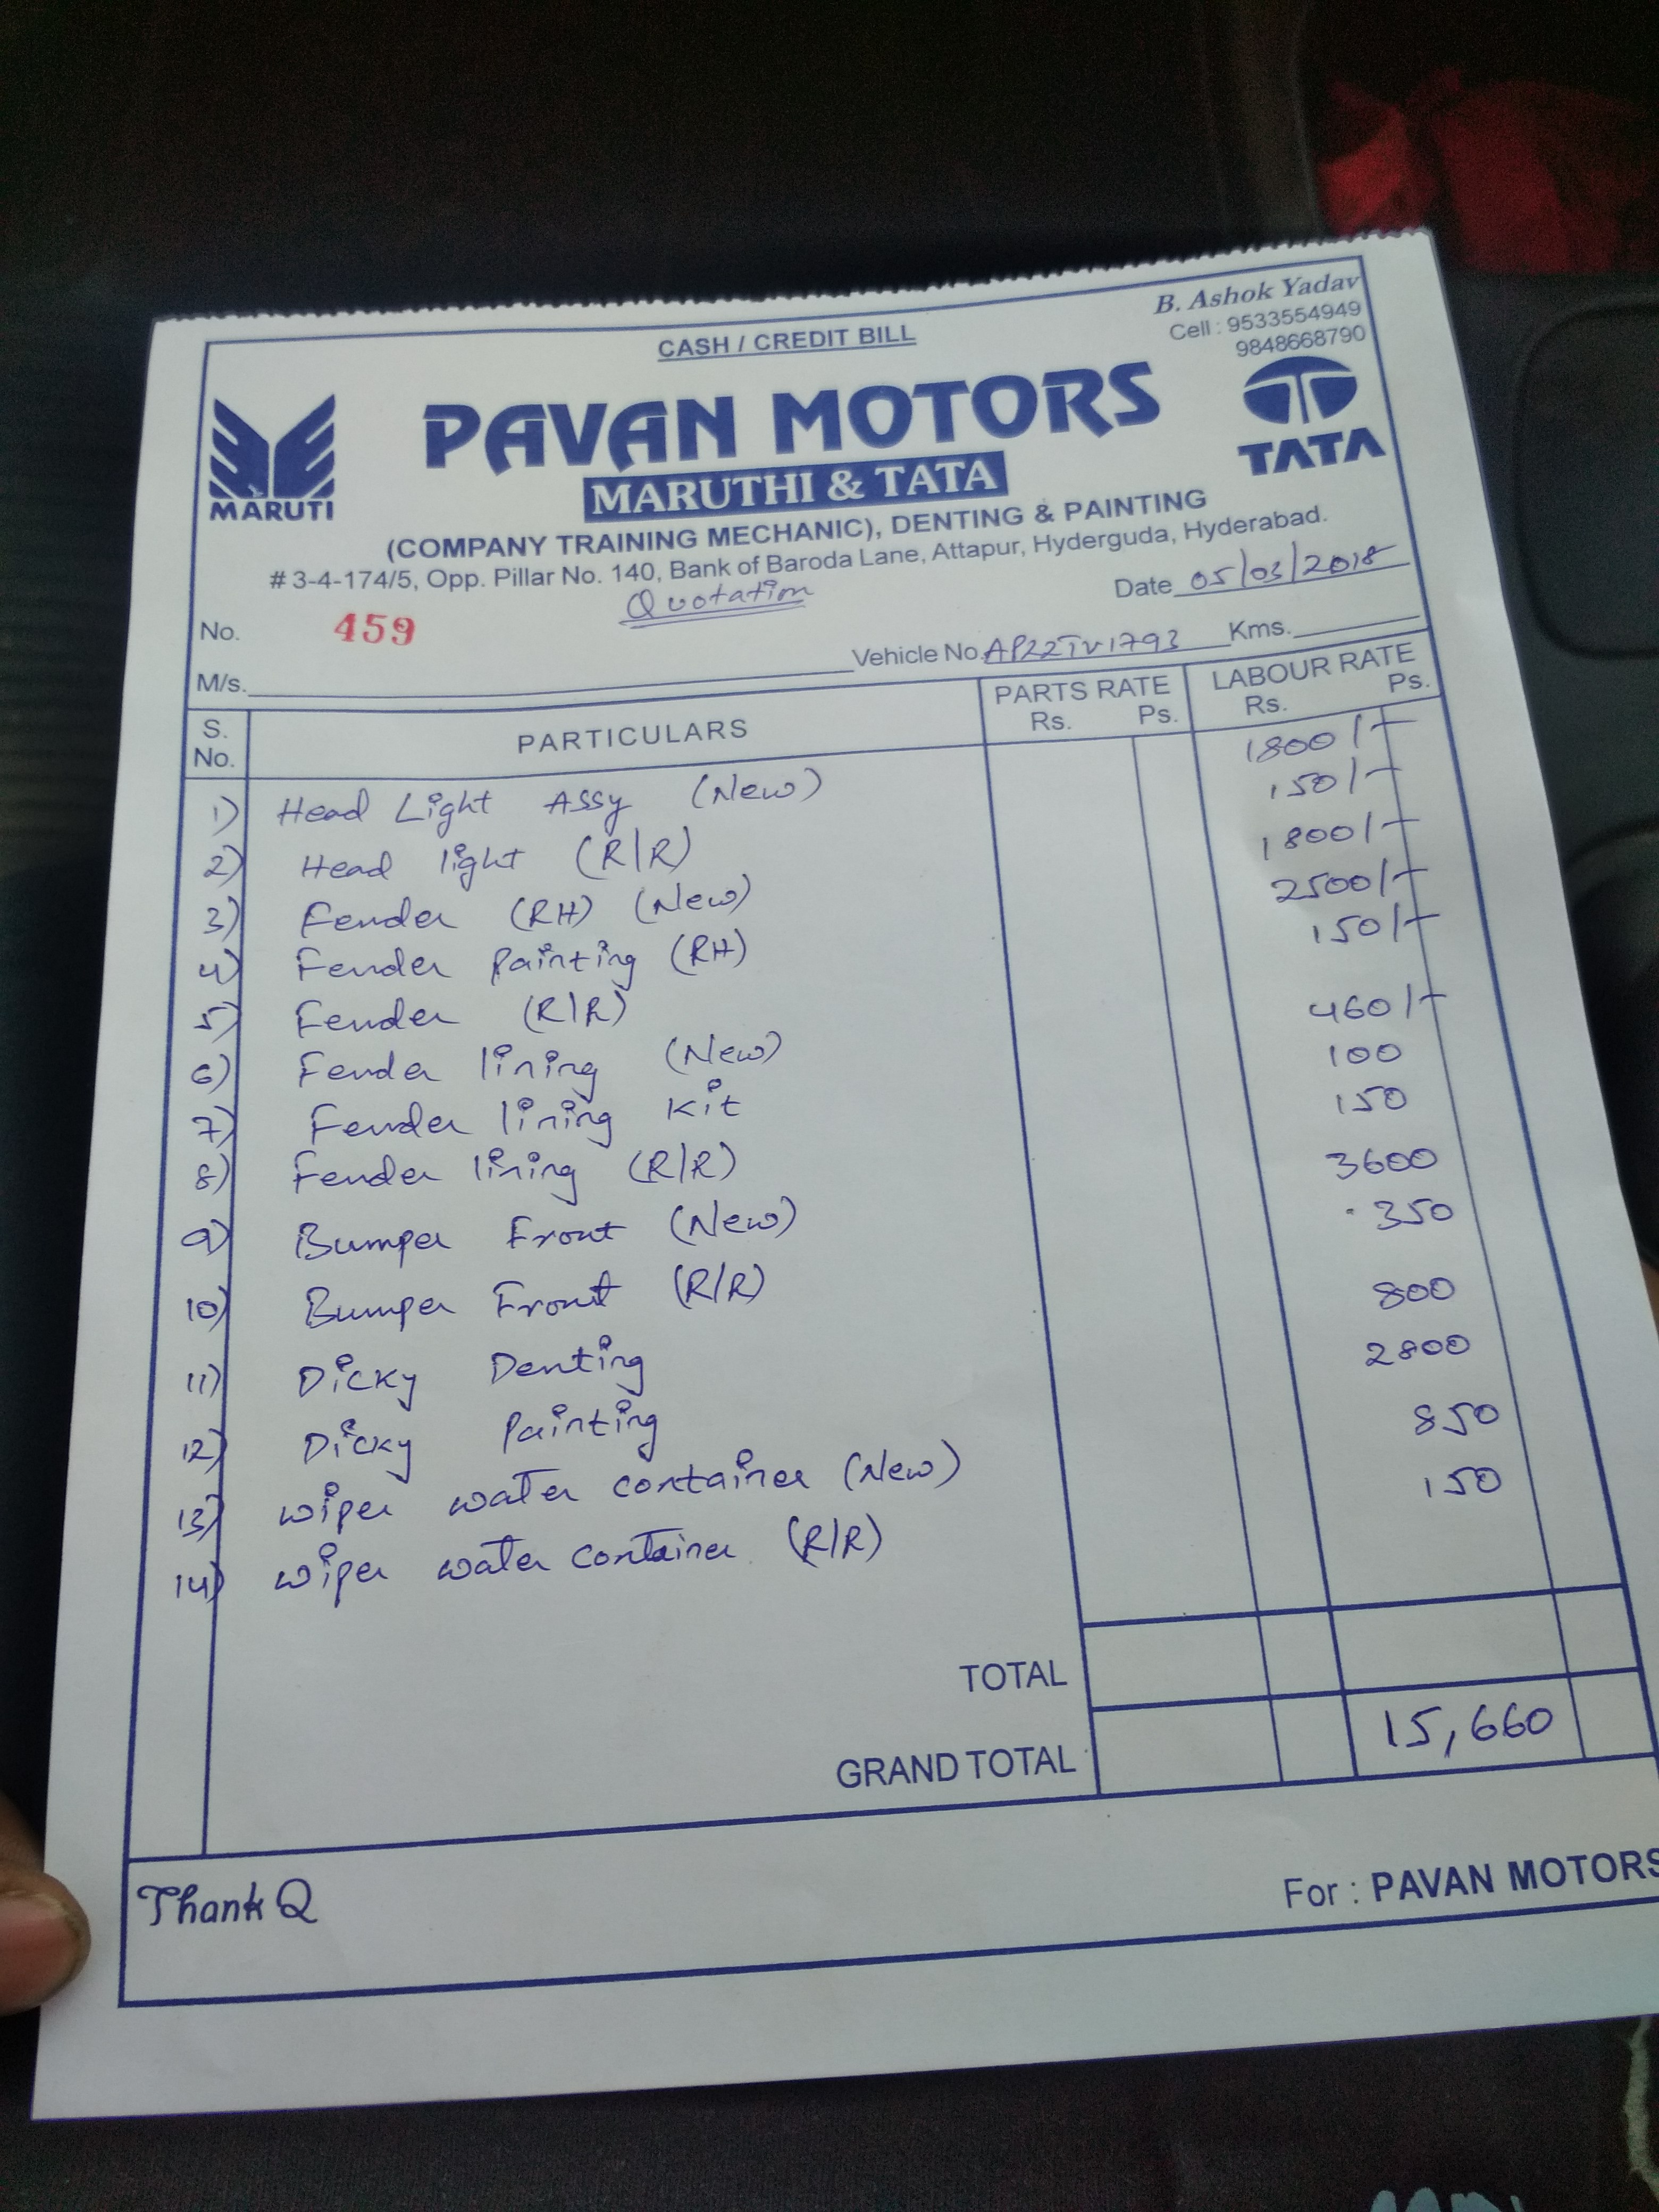 CASH / CREDIT BILL
B. Ashok Yadav
Cell : 9533554949
9848668790
MARUTI
PAVAN MOTORS
TATA
MARUTHI & TATA
(COMPANY TRAINING MECHANIC), DENTING & PAINTING
# 3-4-174/5, Opp. Pillar No. 140, Bank of Baroda Lane, Attapur, Hyderguda, Hyderabad.
Quotation
Date 05/03/2018
No. 459
M/s. Vehicle No. AP22TV1793 Kms.
S. No. PARTICULARS PARTS RATE Rs. Ps. LABOUR RATE Rs. Ps.
1) Head Light Assy (New) 1800/-
2) Head light (R/R) 150/-
3) Fender (RH) (New) 1800/-
4) Fender Painting (RH) 2500/-
5) Fender (R/R) 150/-
6) Fender lining (New) 460/-
7) Fender lining Kit 100
8) Fender lining (R/R) 150
9) Bumper Front (New) 3600
10) Bumper Front (R/R) 350
11) Dicky Denting 800
12) Dicky Painting 2800
13) wiper water container (New) 850
14) wiper water container (R/R) 150
TOTAL
GRAND TOTAL 15,660
Thank Q
For : PAVAN MOTORS